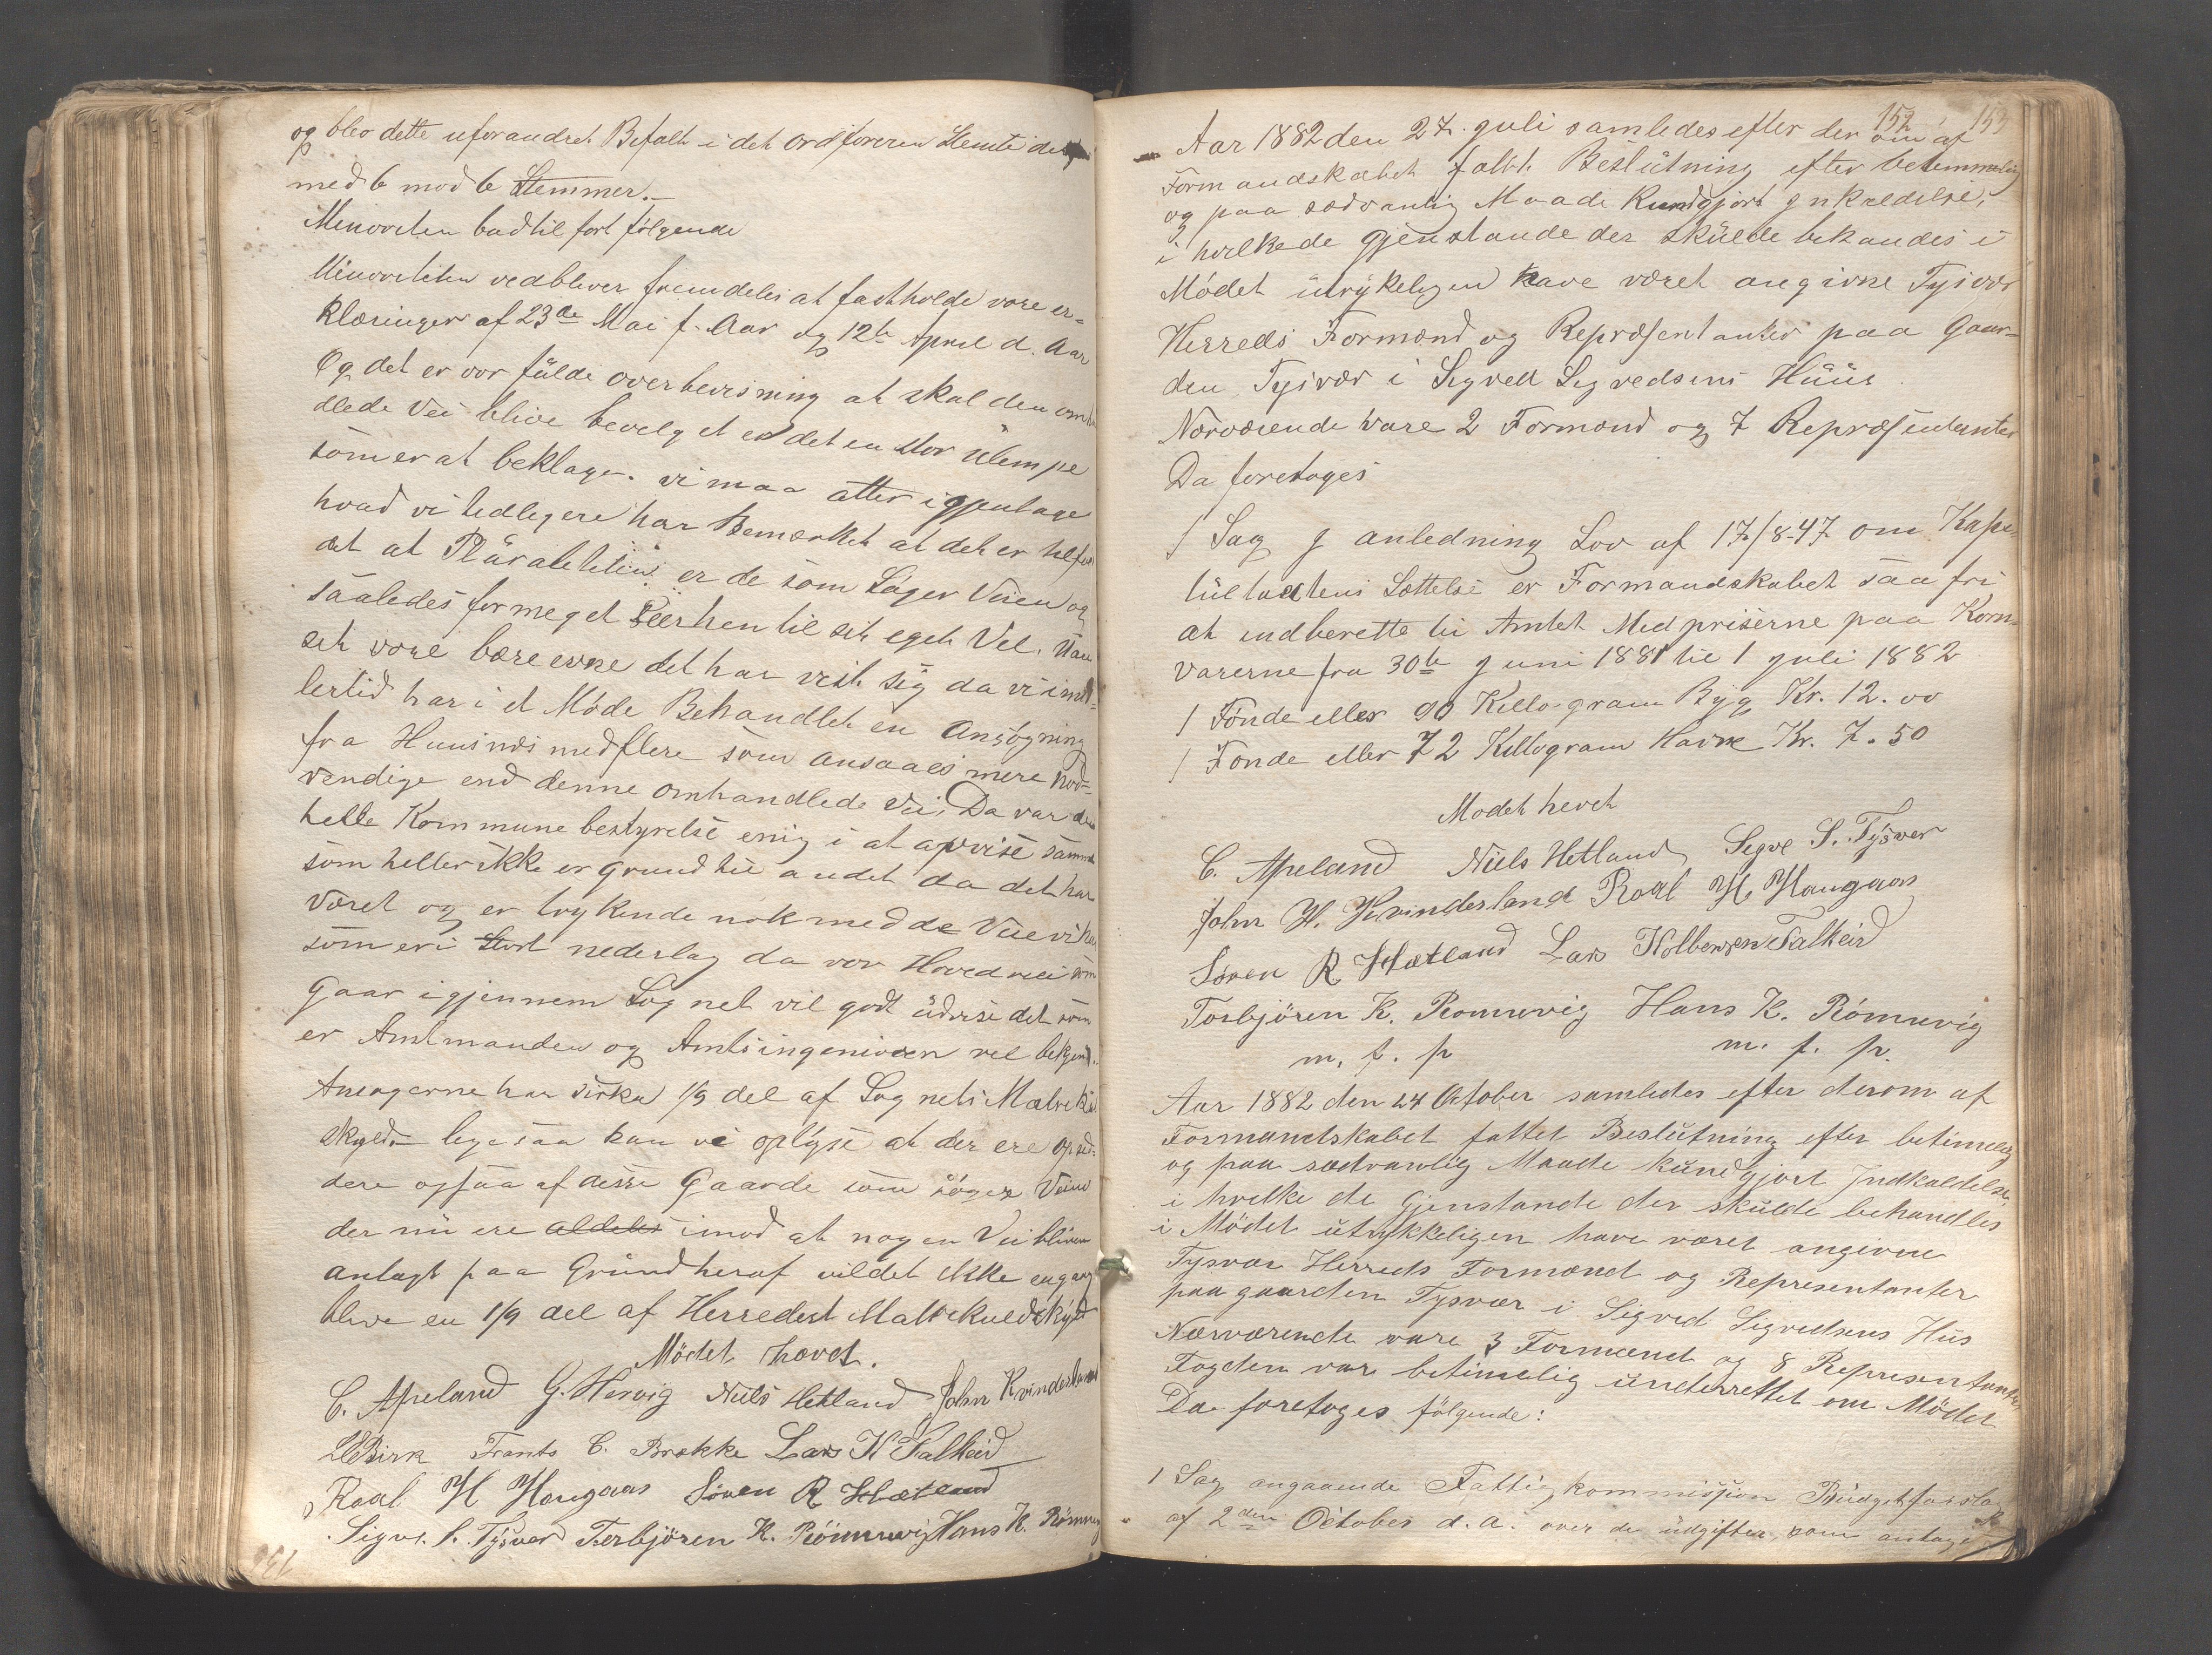 og blev dette uforandret Befalt i det Ordføreren Stemte
med 6 mod 6 Stemmer.
Minoreten bad til ført følgende
Minoriteten vedbliver fremdeles at fastholde vore er=
klæringer af 23de Mai f. Aar og 12te April d. Aar
Og det er vor fulde overbevisning at skal den om
dlede Vei blive bevelget er det en stor ulempe
som er at beklage. vi maa atter igjentage
hvad vi tedligere har Bemærket at det er
det at Pluraliteten er de som Søger Veien og
saaledes for meget seer hen til sit eget Vel. Uan
set vore bære evne det har vist sig da vi imid=
lertid har i et Møde Behandlet en Ansøgning
fra Huusnes med flere som ansaaes mere nød=
vendige end denne omhandlede Vei, Da var den
helle Kommune bestyrelse enig i at afvise samme
som heller ikke er grund til andet da det har
Været og er trykende nok med de Veie vi har
som er i Stort nederlag da vor Hovedvei som
Gaar igjennem Sognet vil godt udvise det som
er Amtmanden og Amtsingeniøren vel bekjendt.
Ansøgerne har sirka 1/9 del af Sognets Matrikul
skyld lige saa kan vi oplyse at der ere opsid=
dere ogsaa af disse Gaarde som søger Veien
der nu ere aldeles imod at nogen Vei bliver
anlagt paa Grund heraf vil det ikke engang
blive en 1/9 del af Herredest Matrikuls Skyld
Mødet hævet.
C. Apeland G. Hervig Niels Hetland John Kvindesland
Birk Frants C. Brekke Lars K Falkeid
Roal H Haugaas Søren R Hetland
Sigve. S. Tysver Torbjören K. Römmervig Hans K. Römmervig
152 153
Aar 1882 den 27. Juli samledes efter der om af
Formandskabet fatt. Beslutning efter betimmelig
og paa sædvanlig Maade Kundgjort Inkaldelse,
i hvilke de gjenstande der skulde behandes i
Mødet utrykeligen have været angivne Tysvær
Herreds Formænd og Repræsentanter paa Gaar=
den Tysvær i Sigvell Sigvedsens Huus
Nærværende vare 2 Formænd og 7 Repræsentanter
Da foretoges
1 Sag I anledning Lov af 17/8-47 om Kape
tuletaktens Settelse er Formandskabet saa fri
at indberette til Amtet Medpriserne paa Korn=
varerne fra 30te Juni 1881 til 1 Juli 1882
1 Tønde eller 90 Killogram Byg Kr. 12.00
1 Tønde eller 72 Killogram Havre Kr. 7.50
Mødet hevet
C. Apeland Niels Hetland Sigve S. Tysver
John H. Kvindesland Roal H. Haugaas
Søren R Hetland Lars Kolbensen Falkeid
Torbjören K. Romervig Hans K. Römervig
m. f. p m. f. p.
Aar 1882 den 24 October samledes efter derom af
Formandskabet fattet Beslutning efter betimelig
og paa sædvanlig Maade kundgjort Indkaldelse,
i hvilke de Gjenstande der skulde behandles
i Mödet utrykkeligen have været angivne
Tysvær Herreds Formænd og Representanter
paa gaarden Tysvær i Sigved Sigvedsens Hus
Nærværende vare 3 Formænd og 8 Representanter
Fogden var betimelig underrettet om Mödet
Da foretoges følgende:
1 Sag angaaende Fattigkommission Budgetforslag
af 2den October d. A. over de udgifter som antages